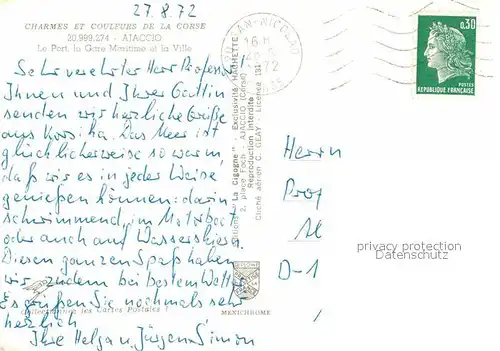 27.8.72
CHARMES ET COULEURS DE LA CORSE
20.999.274 - AJACCIO
Le Port, la Gare Maritime et la Ville
Sehr verehrter Herr Professor!
Ihnen und Ihrer Gattin
senden wir herzliche Grüße
aus Korsika. Das Meer ist
glücklicherweise so warm,
daß wir es in jeder Weise
genießen können: darin
schwimmend, im Motorboot
oder auch auf Wasserskiern.
Diesen ganzen Spaß haben
wir zudem bei bestem Wetter.
Es grüßen Sie nochmals sehr
herzlich
Ihre Helga u. Jürgen Simon
Collectionnez les Cartes Postales !
MEXICHROME
Editions "La Cigogne" - Exclusivité HACHETTE
2, place Foch - AJACCIO (Corse)
Reproduction interdite
Cliché aérien C. GEAY - Licence
-NICOLAO
16 H
72
0,30
REPUBLIQUE FRANÇAISE
Herrn
Prof
M
D-1
privacy protection
DANATO